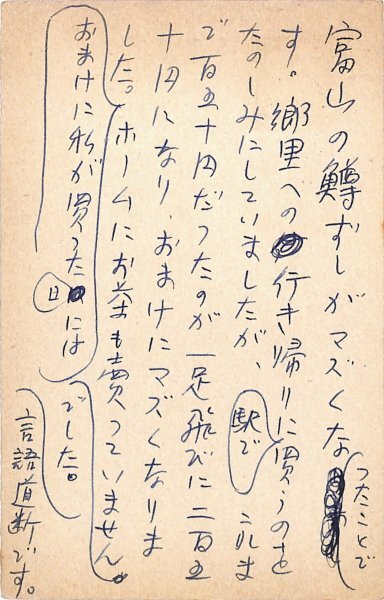 富山の鱒ずしがマズくな
つたことで
す。郷里への行き帰りに買うのを
たのしみにしていましたが、
駅で
これま
で百五十円だつたのが一足飛びに二百五
十円になり、おまけにマズくなりま
した。ホームにお茶も賣つていません
でした。
おまけに私が買つた
日
には
言語道断です。